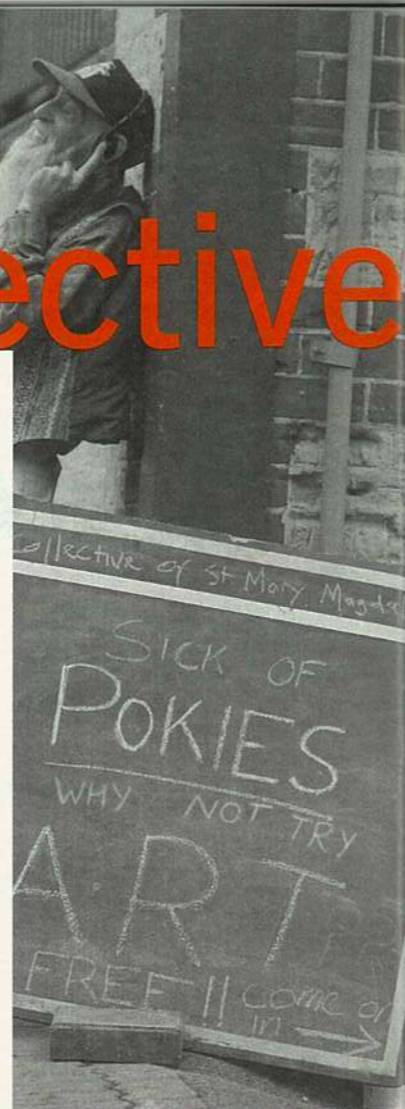 ective
Collective of St Mary Magda
SICK OF
POKIES
WHY NOT TRY
ART
FREE!! come on
in